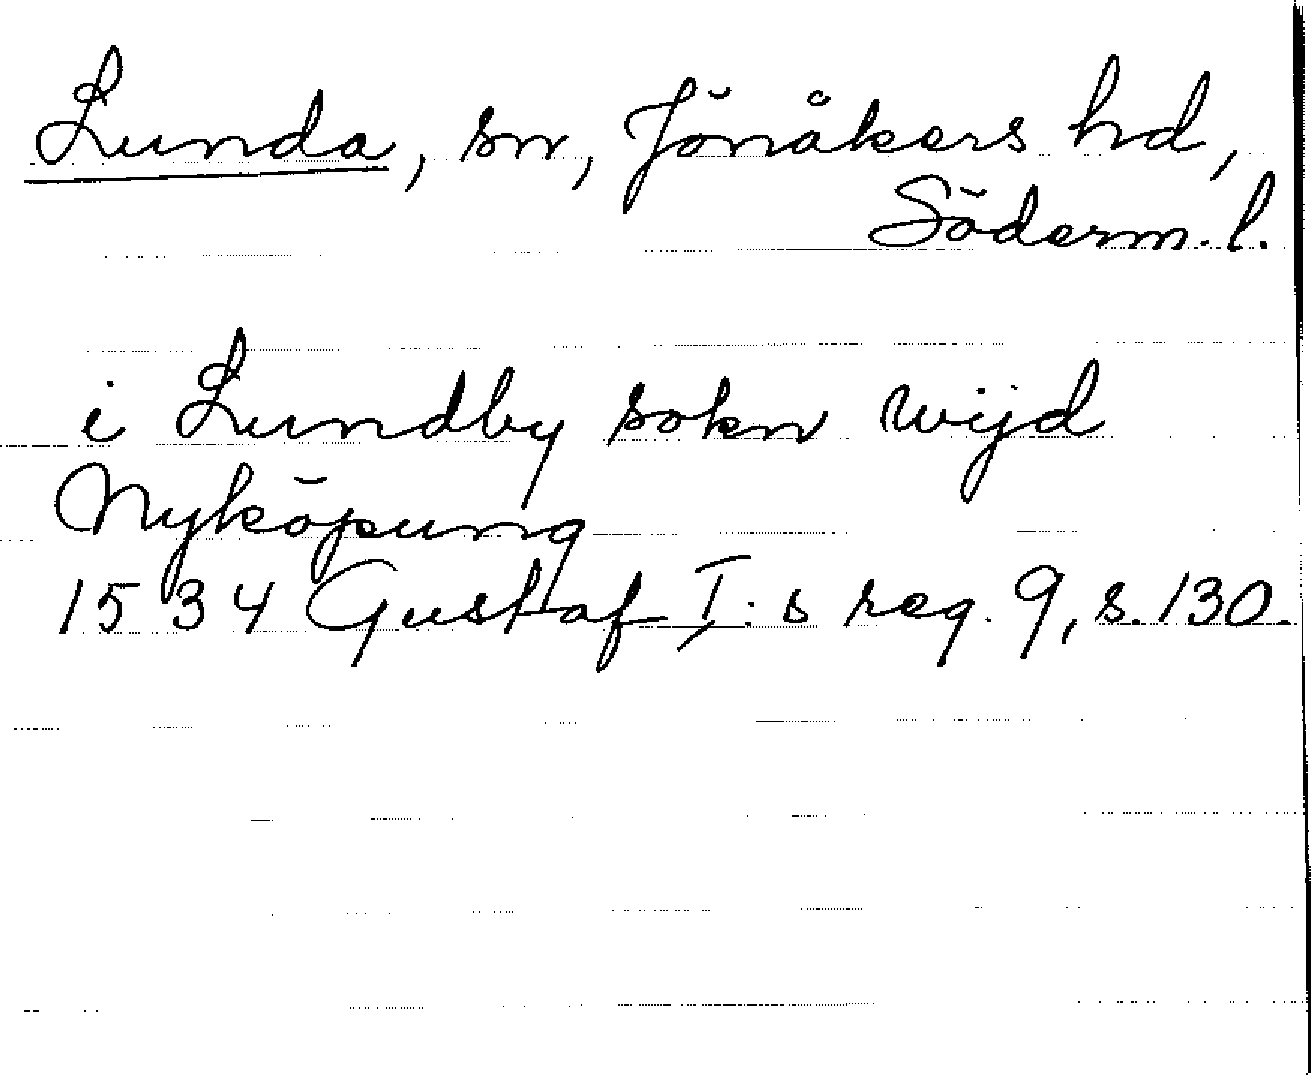 Lunda, sn, Jönåkers hd,
Söderm. l.
i Lundby sokn wijd
Nyköpung
1534 Gustaf I:s reg. 9, s. 130.